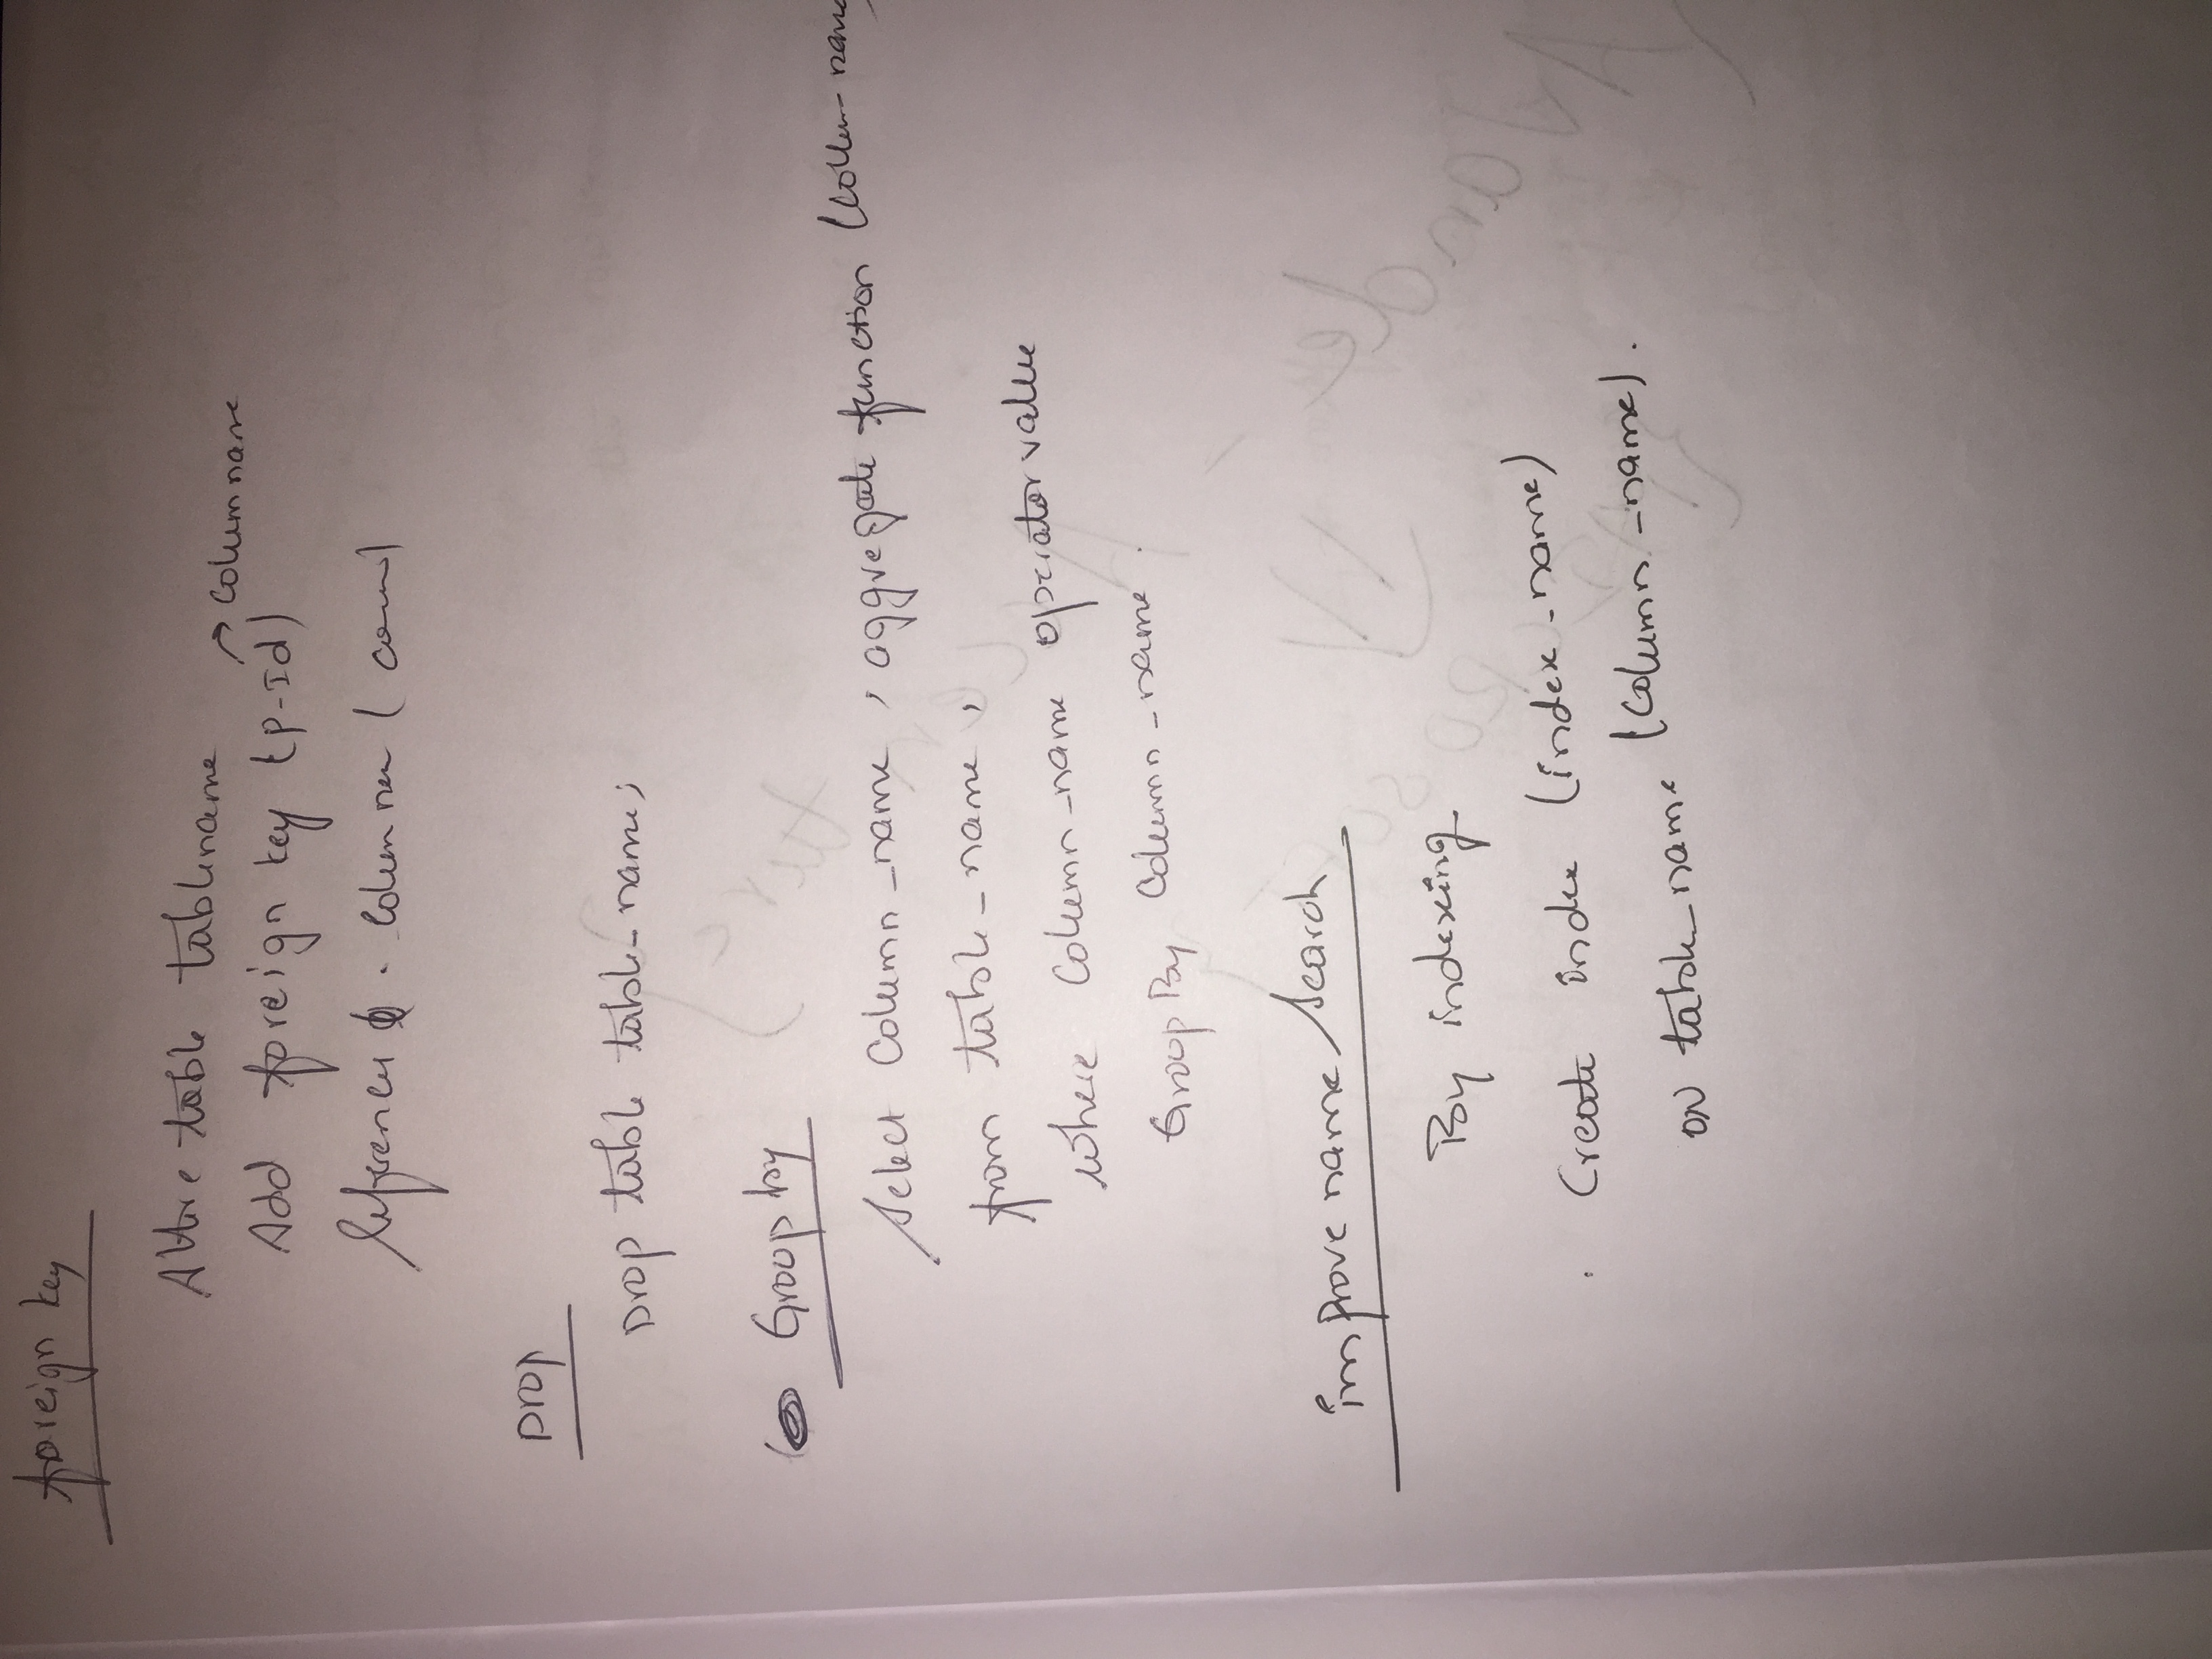 foreign key
Altre table tablename
→ Columname
Add foreign key (P-Id)
References .
Drop
Drop table table_name;
Group by
Select Column_name , aggregate function (
from table_name ,
where Column_name operator value
Group By Column_name .
improve name Search
By indexing
. Create index (index_name)
ON table_name (Column_name) .